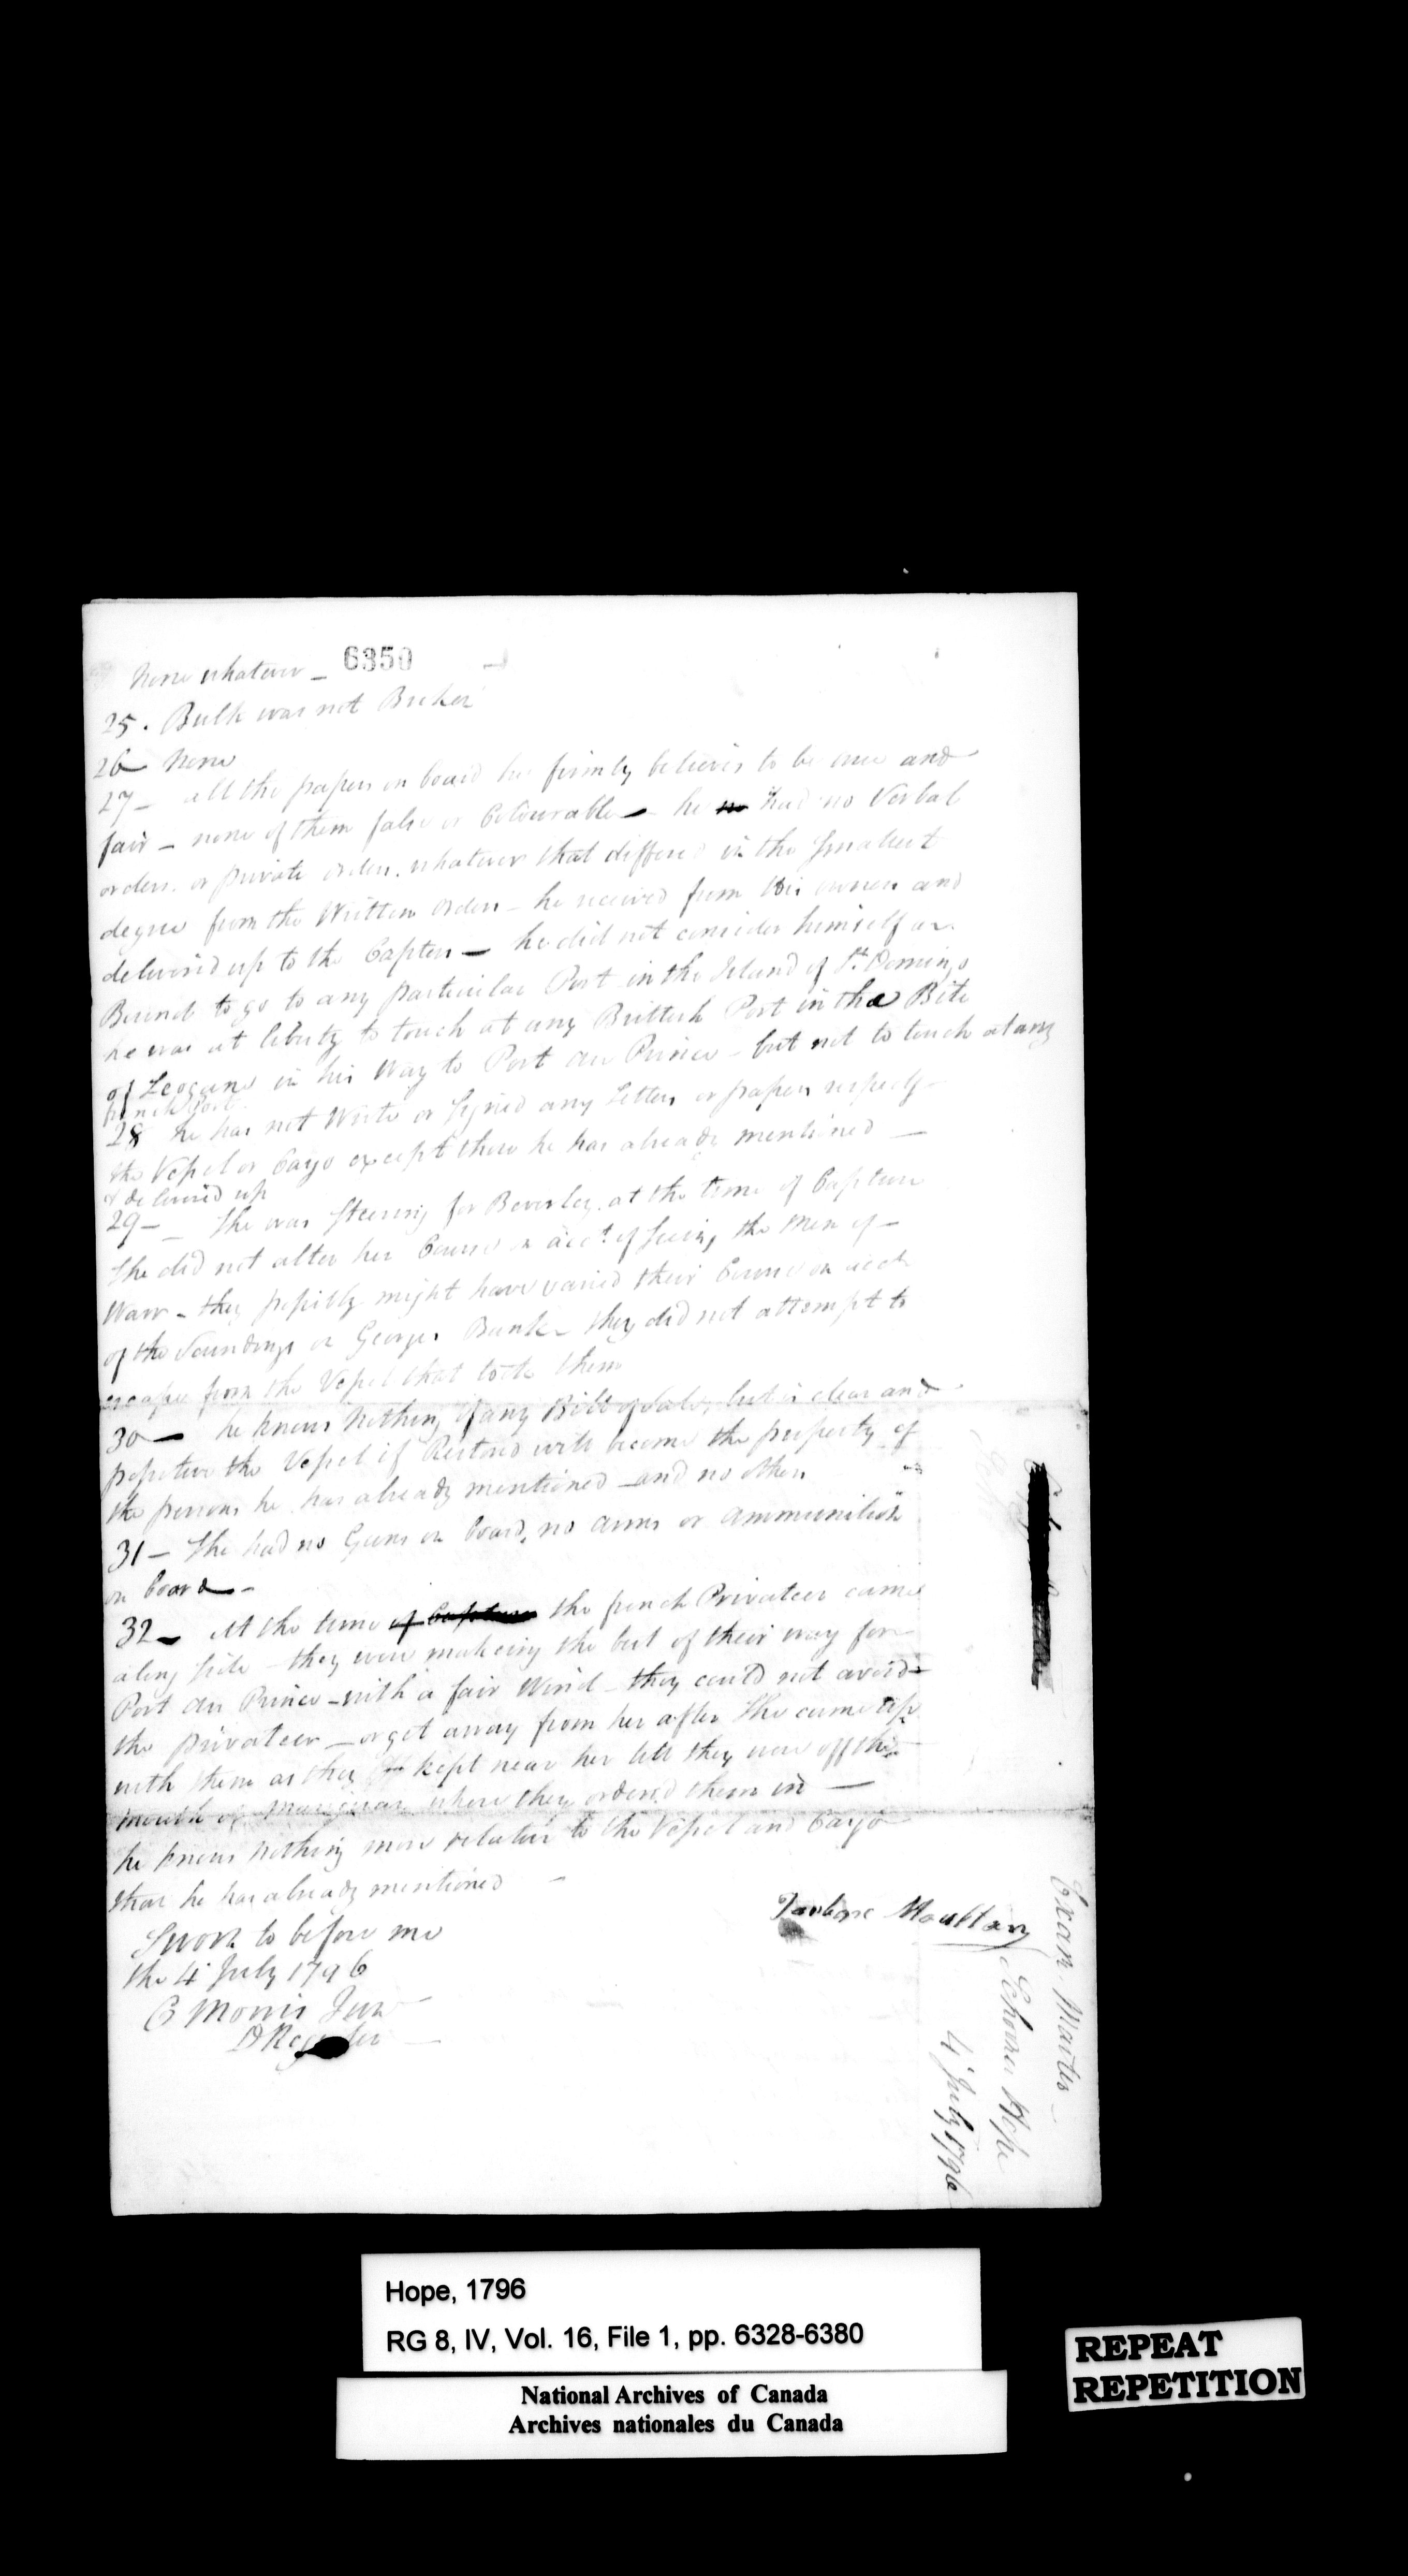 6350
None whatever –
25. Bulk was not Broken
26 – None
27 – all the papers on board he firmly believes to be true and
fair – none of them false or Colourable – he no had no Verbal
orders or private orders whatever that differed in the Smallest
degree from the Written Orders – he received from his owners and
delivered up to the Captors – he did not consider himself as
Bound to go to any particular Port in the Island of St. Domingo
he was at liberty to touch at any Brittish Port in the Bite
of Leogane in his Way to Port au Prince – but not to touch at any
french Port.
28 he has not Wrote or Signed any Letters or papers respectg
the Vessel or Cargo except those he has already mentioned –
& delivered up
29 – She was Steering for Beverley at the time of Capture
She did not alter her Course on acct. of Seeing the Men of –
Warr – they possibly might have varied their Course on acct
of the Soundings on Georges Bank – they did not attempt to
escape from the Vessel that took them
30 – he knows Nothing of any Bill of Sale, but is clear and
positive the Vessel if Restored will become the property of
the persons he has already mentioned – and no others
31 – She had no Guns on board, no arms or ammunition
on board –
32 – At the time of Capture the french Privateer came
along side – they were makeing the best of their way for
Port au Prince – with a fair Wind – they could not avoid
the privateer – or get away from her after She came up
with them as they kept near her till they were off the
mouth of where they ordered them in –
he knows nothing more relative to the Vessel and Cargo
than he has already mentioned –
Tarbox Moulton
Sworn to before me
the 4 July 1796
C Morris Junr
D Register
Exam. Master –
Schooner Hope
4 July 1796
Hope, 1796
RG 8, IV, Vol. 16, File 1, pp. 6328-6380
National Archives of Canada
Archives nationales du Canada
REPEAT
REPETITION